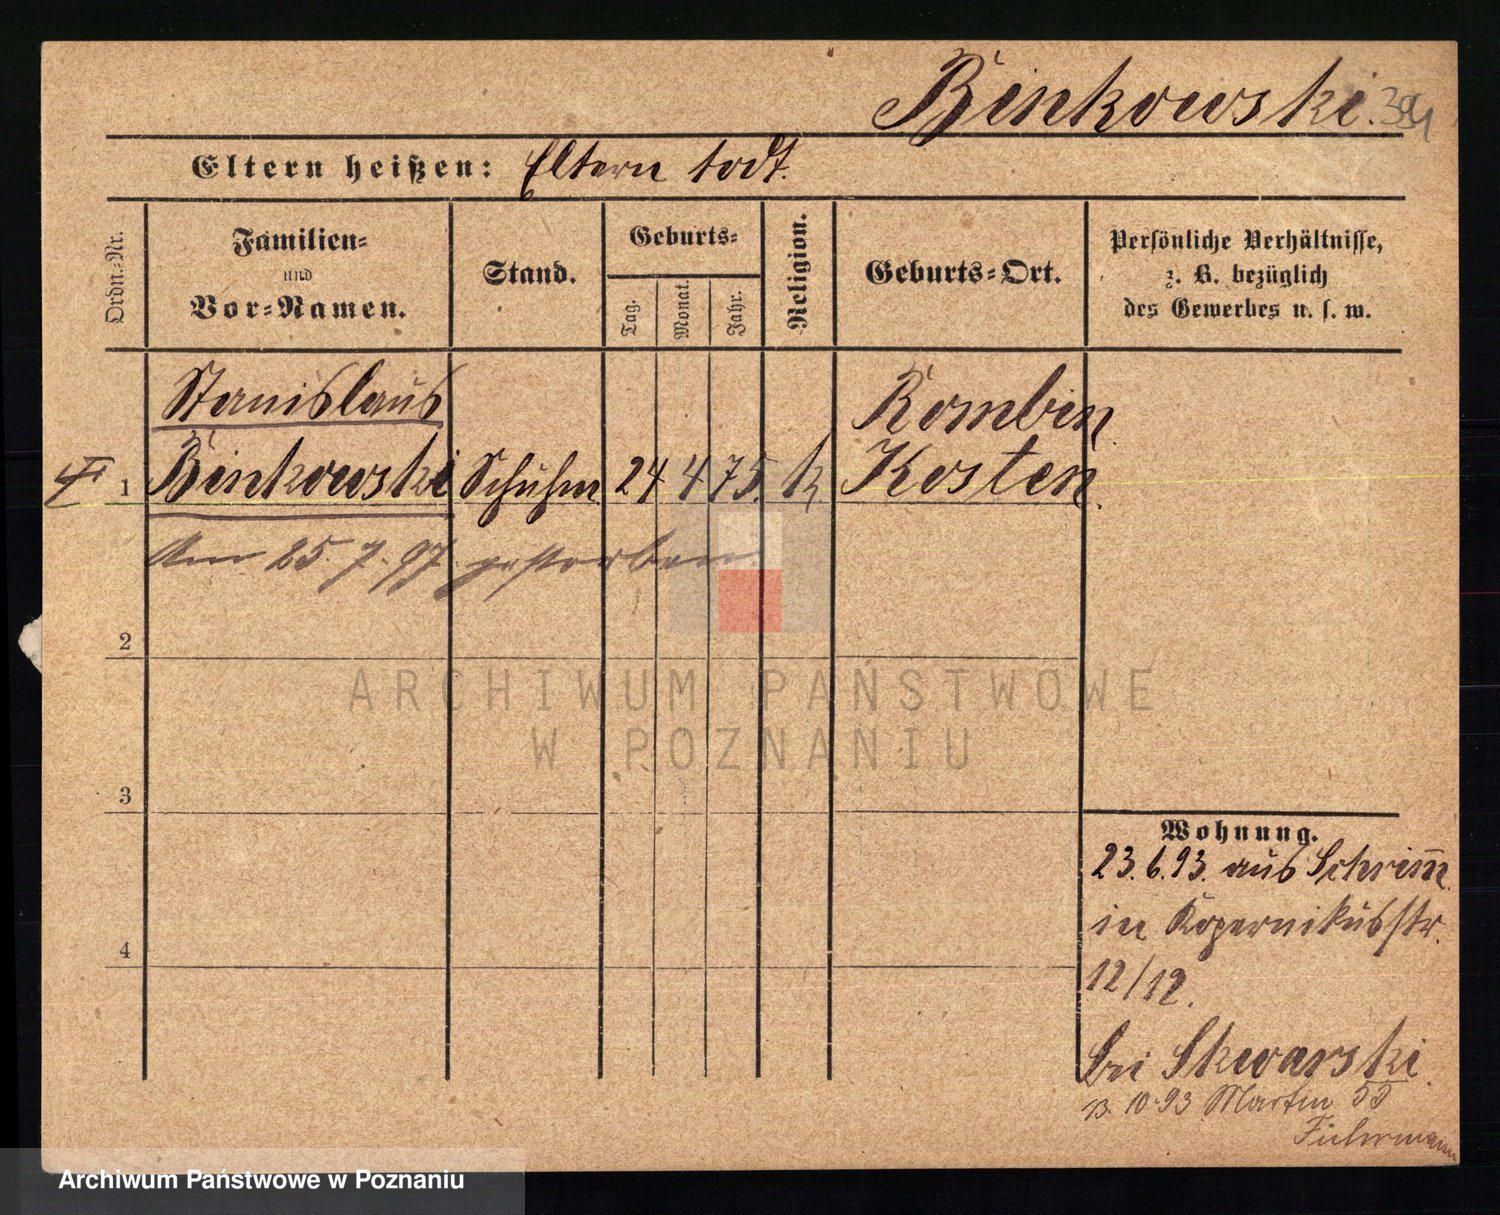 Binkowski. 394
Eltern heißen: Eltern todt.
Ordn.-Nr.
Familien-
und
Vor-Namen.
Stand.
Geburts-
Tag.
Monat.
Jahr.
Religion.
Geburts-Ort.
Persönliche Verhältnisse,
z. B. bezüglich
des Gewerbes u. s. w.
Stanislaus Rombin
1 Binkowski Schuhm 24 4 75. k Kosten.
Am 25.7.97 gestorben
2
3
4
Wohnung.
23.6.93. aus Schrim̄
in Kopernikusstr.
12/12.
bei Skwarski.
13.10.93 Martin 55
Fuhrmann
ARCHIWUM PAŃSTWOWE
W POZNANIU
Archiwum Państwowe w Poznaniu